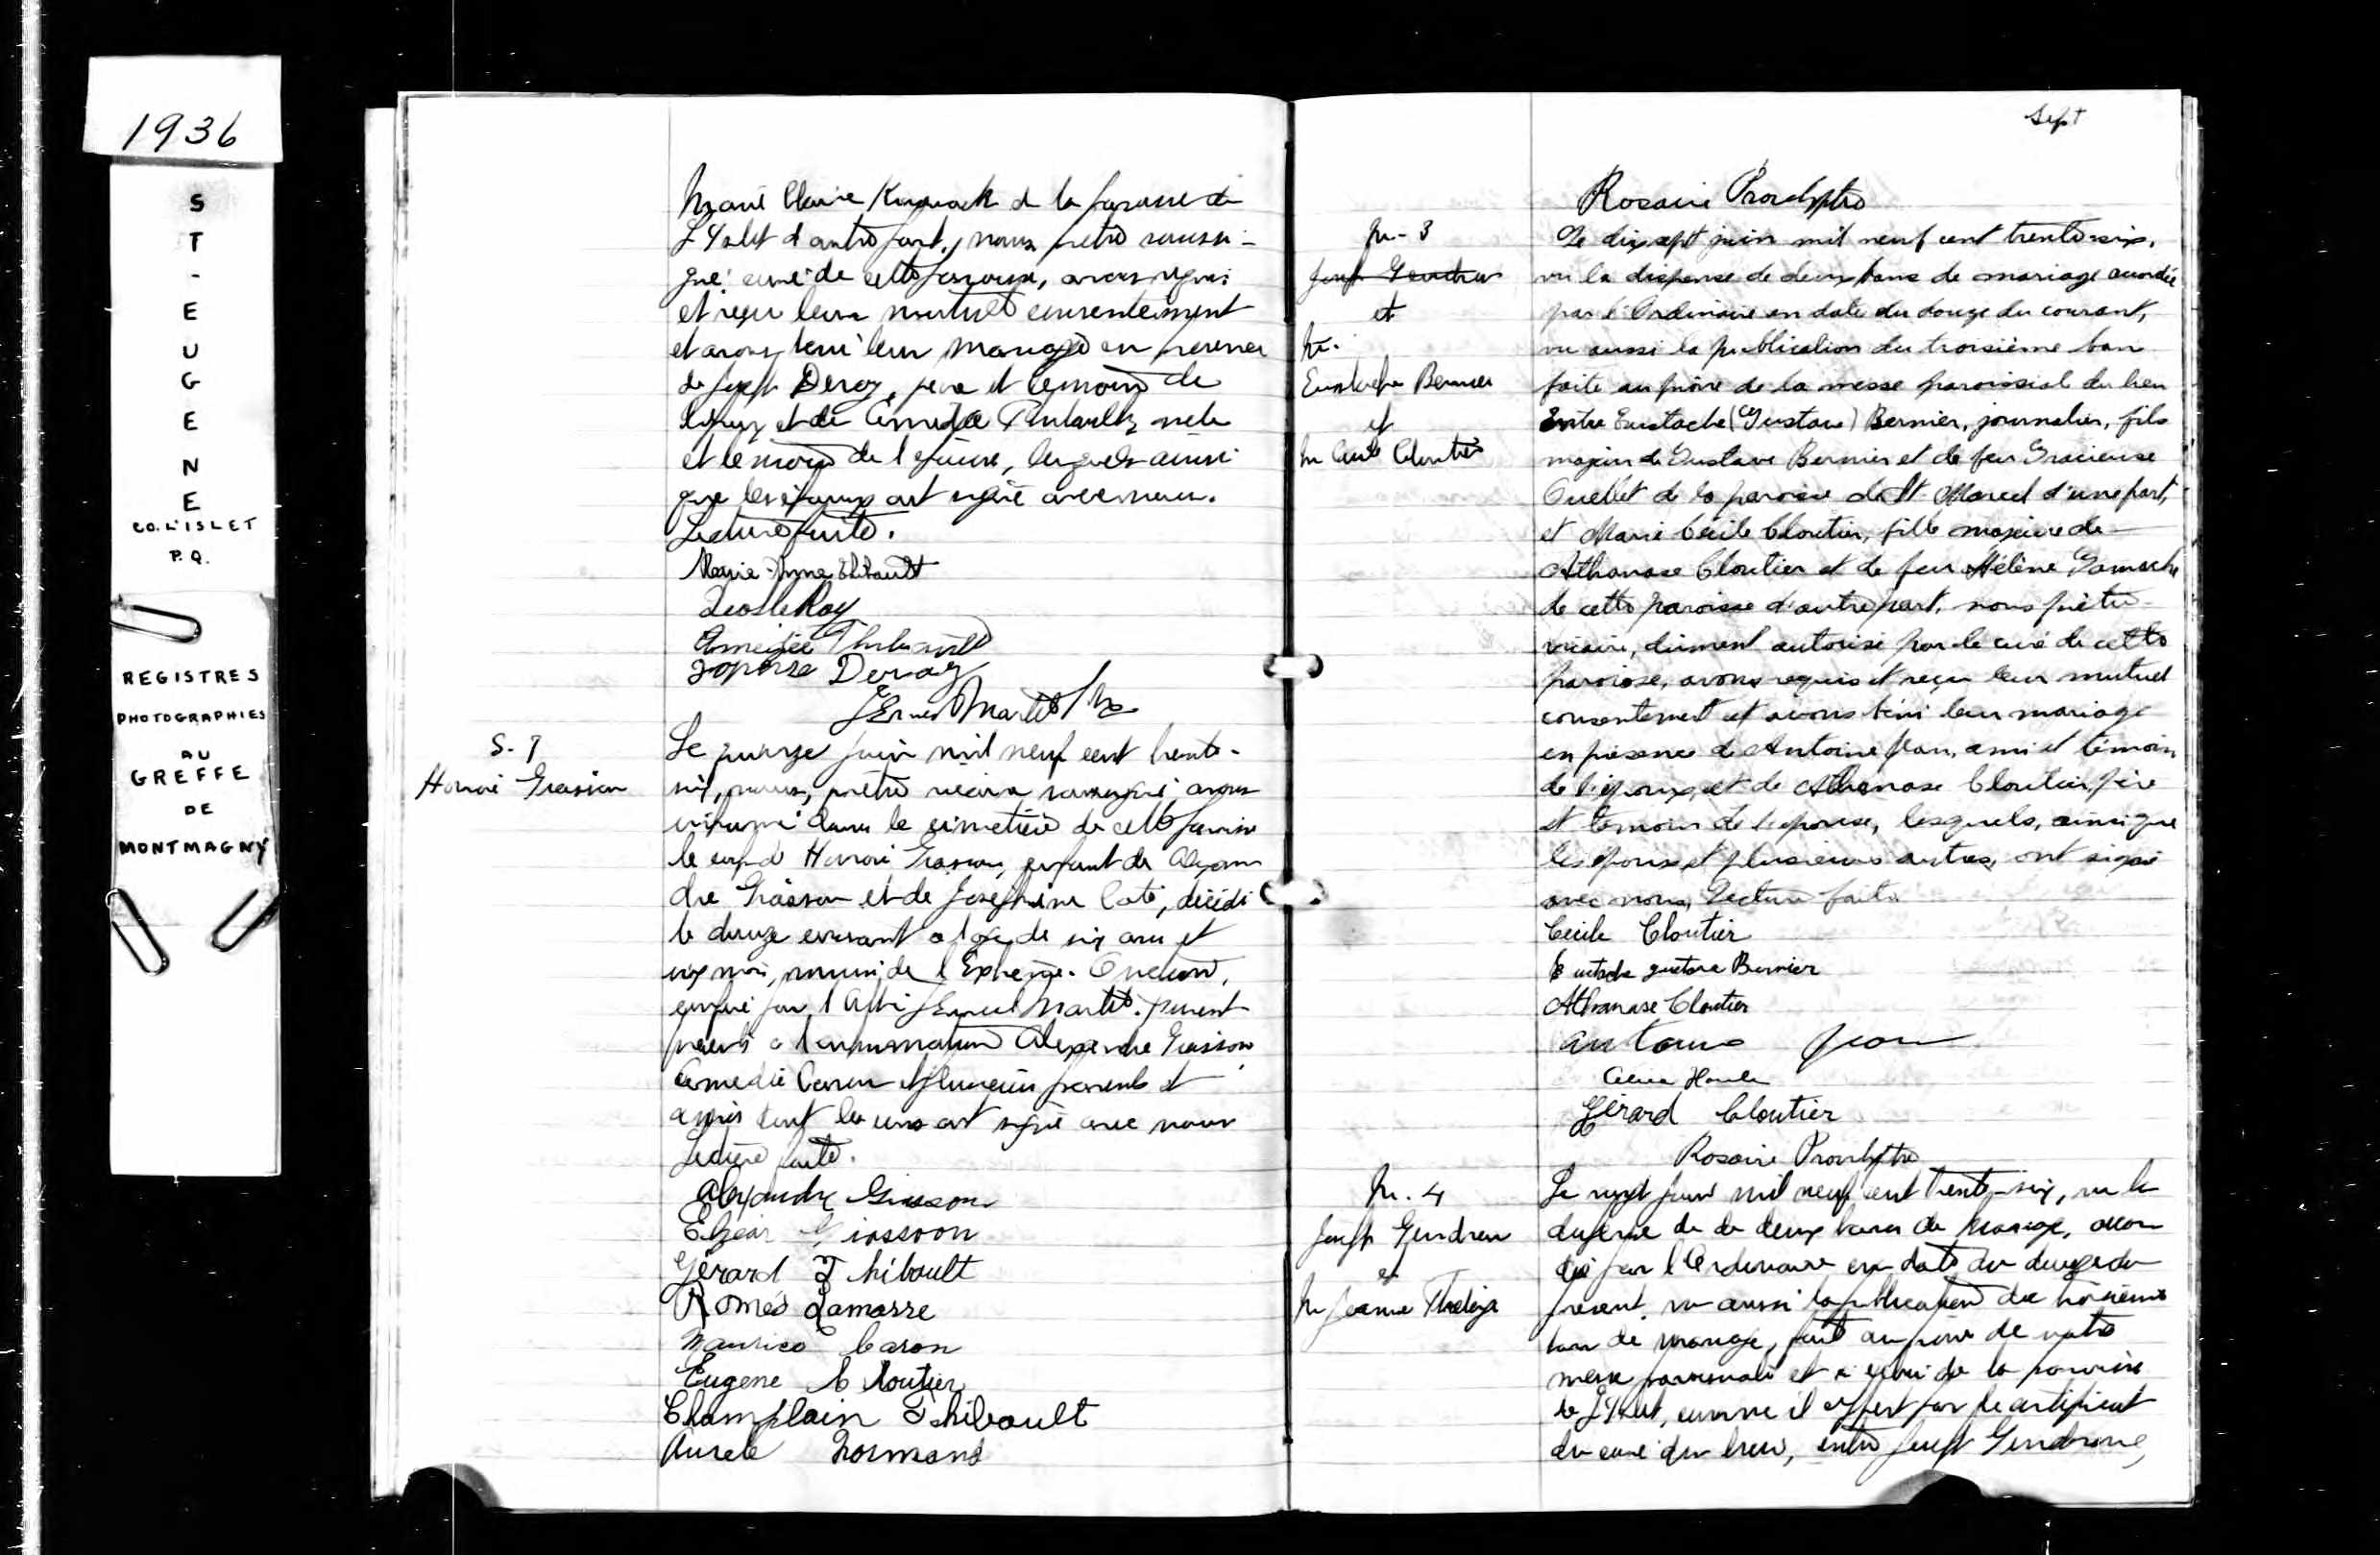 1936
ST-EUGENE
CO. L'ISLET
P.Q.
REGISTRES
PHOTOGRAPHIES
AU
GREFFE
DE
MONTMAGNY
Marie Claire de la paroisse de
L'Islet d'autre part, nous prêtre soussi-
gné curé de cette paroisse, avons requis
et reçu leur mutuel consentement
et avons béni leur mariage en présence
de Joseph Deroy, père et témoin de
l'époux et de Amédée Thibault,
et témoin de l'épouse, lesquels ainsi
que les époux ont signé avec nous.
Lecture faite.
Marie-Anne Thibault
Léo LeRoy
Amédée Thibault
Joseph Deroy
J Ernest Martel Ptre
S-7
Honoré Giasson
Le quinze juin mil neuf cent trente-
six, nous, prêtre vicaire soussigné, avons
inhumé dans le cimetière de cette paroisse
le corps d Honoré Giasson, enfant de Alexan
dre Giasson et de Joséphine Coté, décédé
le douze courant a l'age de six ans et
six mois, muni de l'Extrême-Onction,
par l'Abbé J Ernest Martel. Furent
présents a l'inhumation Alexandre Giasson
Amédée Caron et plusieurs parents et
amis dont les uns ont signé avec nous
Lecture faite.
Alexandre Giasson
Elzéar Giassoon
Gérard Thibault
Roméo Lamarre
Maurice Caron
Eugene Cloutier
Champlain Thibault
Aurele Normand
Sept
Rosaire Proulx ptre
M-3
Joseph Gendreau
et
M.
Eustache Bernier
et
M Cécile Cloutier
Le dix sept juin mil neuf cent trente-six,
vu la dispense de deux bans de mariage accordée
par l'Ordinaire en date du douze du courant,
vu aussi la publication du troisième ban
faite au prône de la messe paroissial du lieu
Entre Eustache (Gustave) Bernier, journalier, fils
majeur de Gustave Bernier et de feu Gracieuse
Ouellet de la paroisse de St-Marcel d'une part,
et Marie Cécile Cloutier, fille majeure de
Athanase Cloutier et de feu Hélène Gamache
de cette paroisse d'autre part, nous prêtre-
vicaire, dûment autorisé par le curé de cette
paroisse, avons requis et reçu leur mutuel
consentement et avons béni leur mariage
en présence de Antoine Jean, ami et témoin
de l'époux, et de Athanase Cloutier, père
et témoin de l'épouse, lesquels, ainsi que
les époux et plusieurs autres, ont signé
avec nous, Lecture faite.
Cécile Cloutier
Eustache gustave Bernier
Athanase Cloutier
Antoine Jean
Gérard Cloutier
Rosaire Proulx ptre
M. 4
Joseph Gendreau
et
M Jeanne
Le vingt juin mil neuf cent trente-six, vu la
dispense de de deux bans de mariage, accor
dée par l'Ordinaire en date du douze du
présent, vu aussi la publication du troisième
ban de mariage, fait au prône de notre
messe paroissiale et a celui de la paroisse
de L'Islet, comme il appert par le certificat
du curé du lieu, entre Joseph Gendreau,